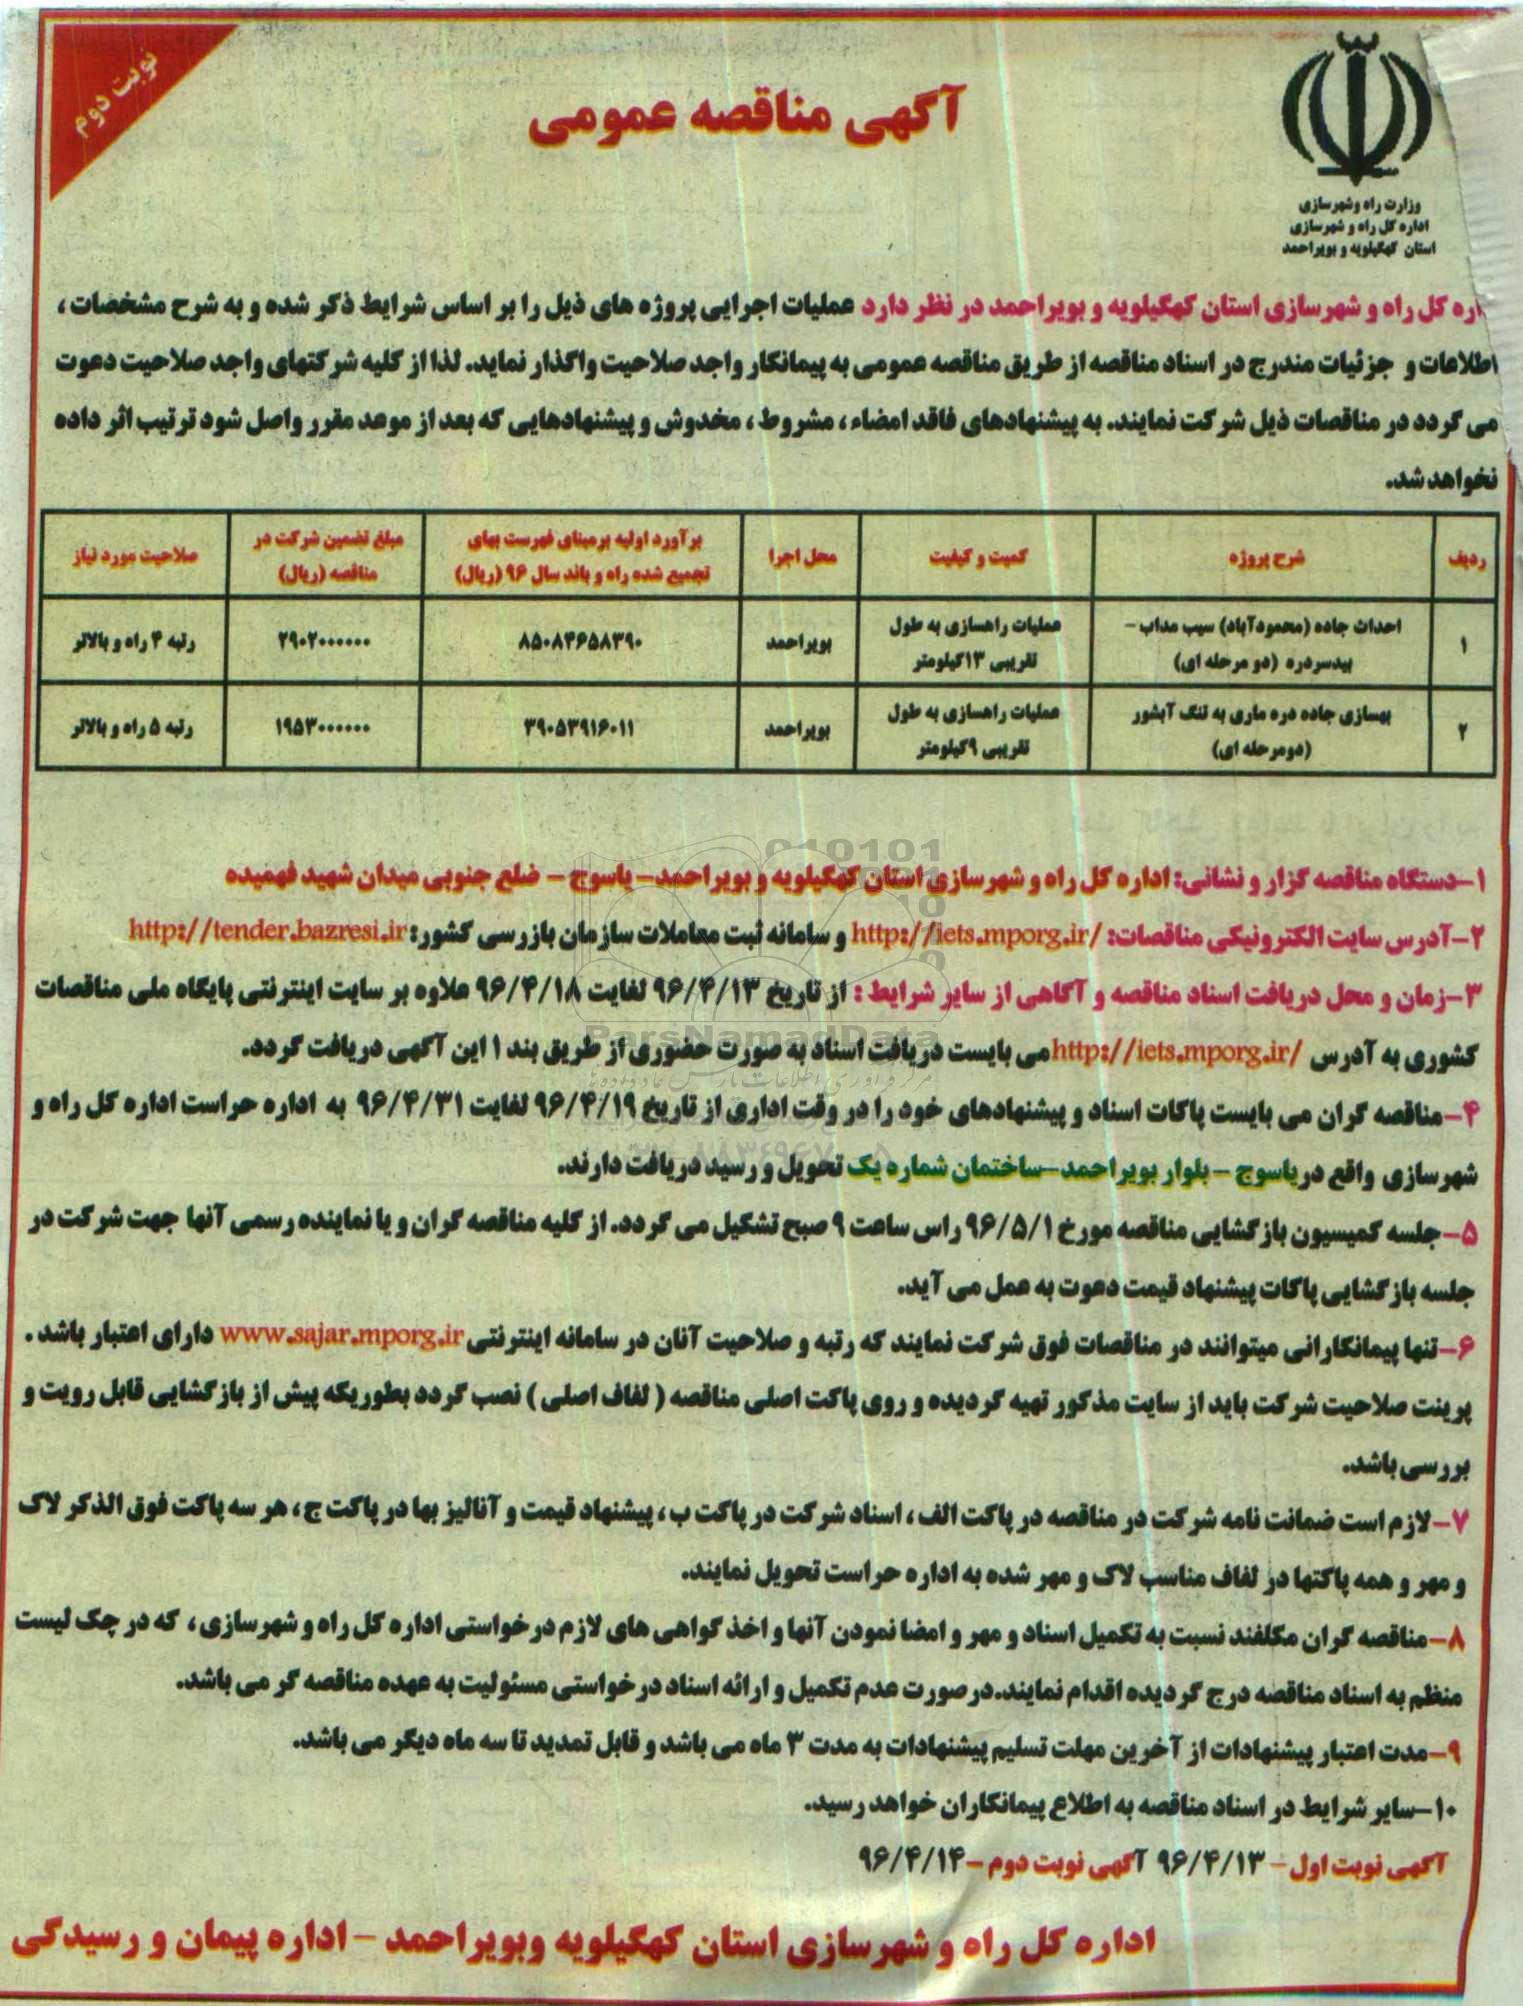 نوبت دوم
آگهی مناقصه عمومی
وزارت راه وشهرسازی
اداره کل راه و شهرسازی
استان کهگیلویه و بویراحمد
کل راه و شهرسازی استان کهگیلویه و بویراحمد در نظر دارد عملیات اجرایی پروژه های ذیل را بر اساس شرایط ذکر شده و به شرح مشخصات ،
اطلاعات و جزئیات مندرج در اسناد مناقصه از طریق مناقصه عمومی به پیمانکار واجد صلاحیت واگذار نماید. لذا از کلیه شرکتهای واجد صلاحیت دعوت
می گردد در مناقصات ذیل شرکت نمایند. به پیشنهادهای فاقد امضاء ، مشروط ، مخدوش و پیشنهادهایی که بعد از موعد مقرر واصل شود ترتیب اثر داده
نخواهد شد.
ردیف | شرح پروژه | کمیت و کیفیت | محل اجرا | برآورد اولیه برمبنای فهرست بهای تجمیع شده راه و باند سال ۹۶ (ریال) | مبلغ تضمین شرکت در مناقصه (ریال) | صلاحیت مورد نیاز
۱ | احداث جاده (محمودآباد) سیب مداب – بیدسردره (دو مرحله ای) | عملیات راهسازی به طول تقریبی ۱۳کیلومتر | بویراحمد | ۸۵۰۸۴۶۵۸۳۹۰ | ۲۹۰۲۰۰۰۰۰۰ | رتبه ۴ راه و بالاتر
۲ | بهسازی جاده دره ماری به تنگ آبشور (دومرحله ای) | عملیات راهسازی به طول تقریبی ۹کیلومتر | بویراحمد | ۳۹۰۵۳۹۱۶۰۱۱ | ۱۹۵۳۰۰۰۰۰۰ | رتبه ۵ راه و بالاتر
۱-دستگاه مناقصه گزار و نشانی: اداره کل راه و شهرسازی استان کهگیلویه و بویراحمد- یاسوج - ضلع جنوبی میدان شهید فهمیده
۲-آدرس سایت الکترونیکی مناقصات: http://iets.mporg.ir/ و سامانه ثبت معاملات سازمان بازرسی کشور: http://tender.bazresi.ir
۳-زمان و محل دریافت اسناد مناقصه و آگاهی از سایر شرایط : از تاریخ ۹۶/۴/۱۳ لغایت ۹۶/۴/۱۸ علاوه بر سایت اینترنتی پایگاه ملی مناقصات
کشوری به آدرس http://iets.mporg.ir/ می بایست دریافت اسناد به صورت حضوری از طریق بند ۱ این آگهی دریافت گردد.
۴-مناقصه گران می بایست پاکات اسناد و پیشنهادهای خود را در وقت اداری از تاریخ ۹۶/۴/۱۹ لغایت ۹۶/۴/۳۱ به اداره حراست اداره کل راه و
شهرسازی واقع دریاسوج - بلوار بویراحمد-ساختمان شماره یک تحویل و رسید دریافت دارند.
۵-جلسه کمیسیون بازگشایی مناقصه مورخ ۹۶/۵/۱ راس ساعت ۹ صبح تشکیل می گردد. از کلیه مناقصه گران و یا نماینده رسمی آنها جهت شرکت در
جلسه بازگشایی پاکات پیشنهاد قیمت دعوت به عمل می آید.
۶-تنها پیمانکارانی میتوانند در مناقصات فوق شرکت نمایند که رتبه و صلاحیت آنان در سامانه اینترنتی www.sajar.mporg.ir دارای اعتبار باشد .
پرینت صلاحیت شرکت باید از سایت مذکور تهیه گردیده و روی پاکت اصلی مناقصه ( لفاف اصلی ) نصب گردد بطوریکه پیش از بازگشایی قابل رویت و
بررسی باشد.
۷-لازم است ضمانت نامه شرکت در مناقصه در پاکت الف ، اسناد شرکت در پاکت ب ، پیشنهاد قیمت و آنالیز بها در پاکت ج ، هر سه پاکت فوق الذکر لاک
و مهر و همه پاکتها در لفاف مناسب لاک و مهر شده به اداره حراست تحویل نمایند.
۸-مناقصه گران مکلفند نسبت به تکمیل اسناد و مهر و امضا نمودن آنها و اخذ گواهی های لازم درخواستی اداره کل راه و شهرسازی ، که در چک لیست
منظم به اسناد مناقصه درج گردیده اقدام نمایند.درصورت عدم تکمیل و ارائه اسناد درخواستی مسئولیت به عهده مناقصه گر می باشد.
۹-مدت اعتبار پیشنهادات از آخرین مهلت تسلیم پیشنهادات به مدت ۳ ماه می باشد و قابل تمدید تا سه ماه دیگر می باشد.
۱۰-سایر شرایط در اسناد مناقصه به اطلاع پیمانکاران خواهد رسید.
آگهی نوبت اول - ۹۶/۴/۱۳ آگهی نوبت دوم -۹۶/۴/۱۴
اداره کل راه و شهرسازی استان کهگیلویه وبویراحمد - اداره پیمان و رسیدگی
ParsNamadData